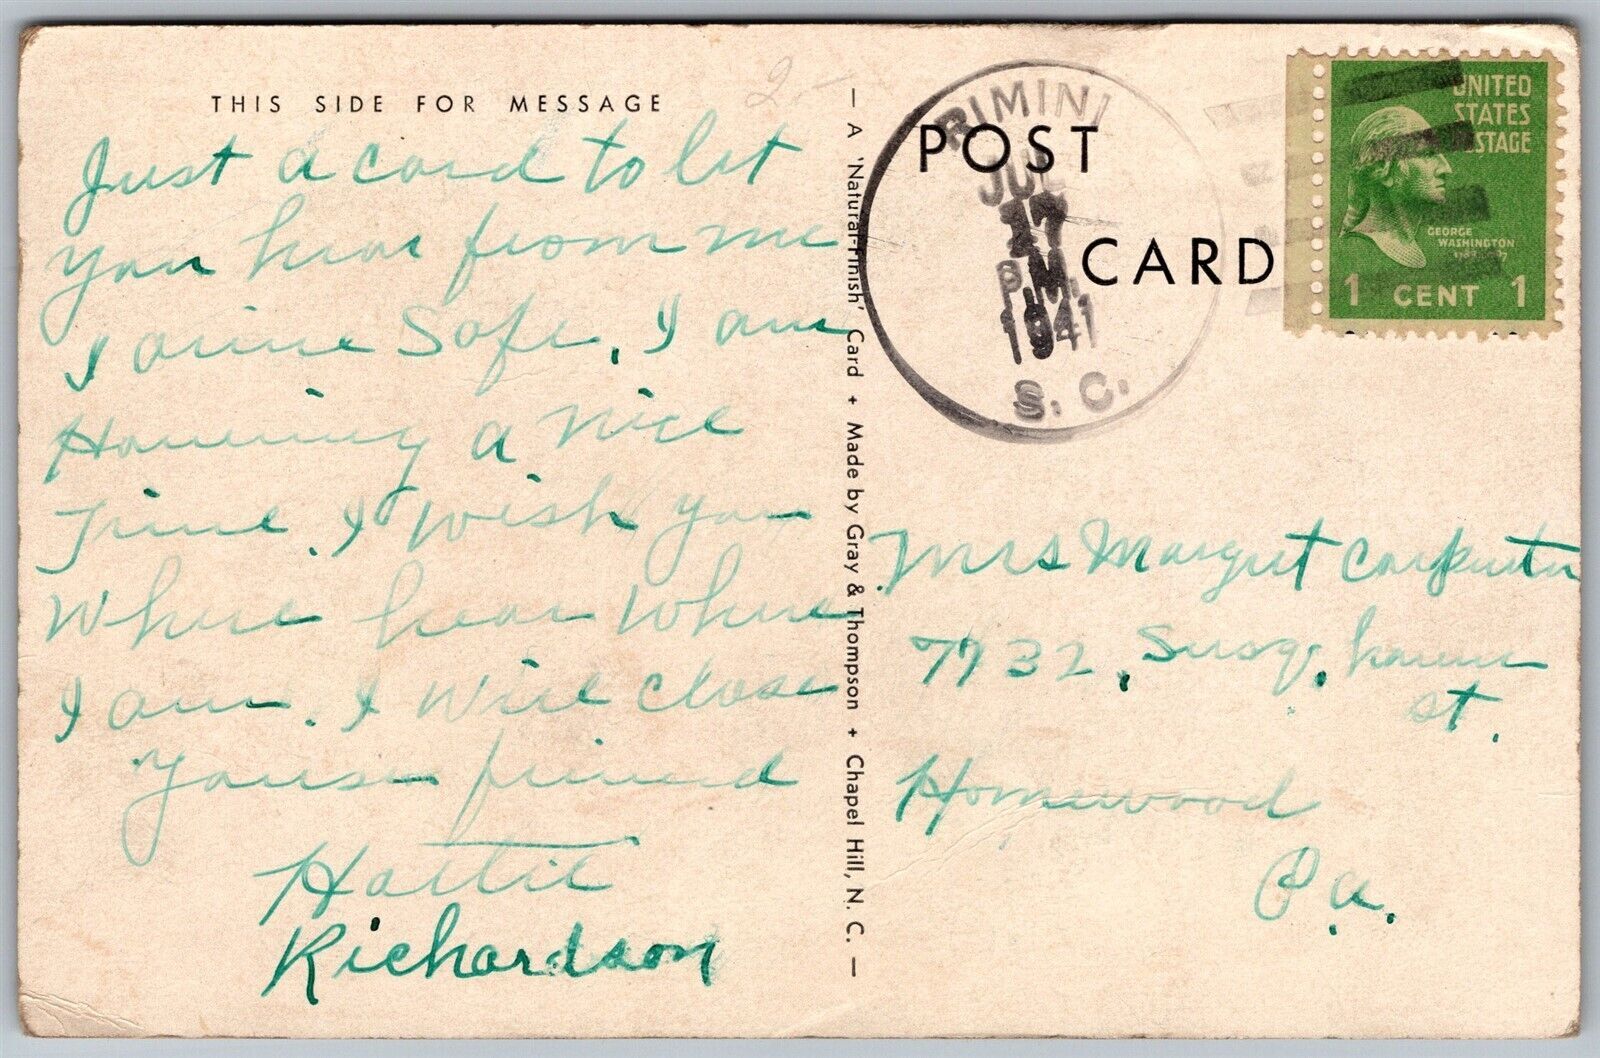 THIS SIDE FOR MESSAGE
Just a card to let
you hear from me
I arive Safe. I am
Haveing a nice
Time. I wish you
Where hear Where
I am. I will close
Your friend
Hattie
Richardson
— A 'Natural-Finish' Card ✦ Made by Gray & Thompson ✦ Chapel Hill, N. C. —
POST CARD
RIMINI
JUL
17
P.M.
1941
S. C.
UNITED
STATES
POSTAGE
GEORGE
WASHINGTON
1 CENT 1
Mrs Margret Carpenter
7732, Susq. hanna
st.
Homewood
Pa.
2-